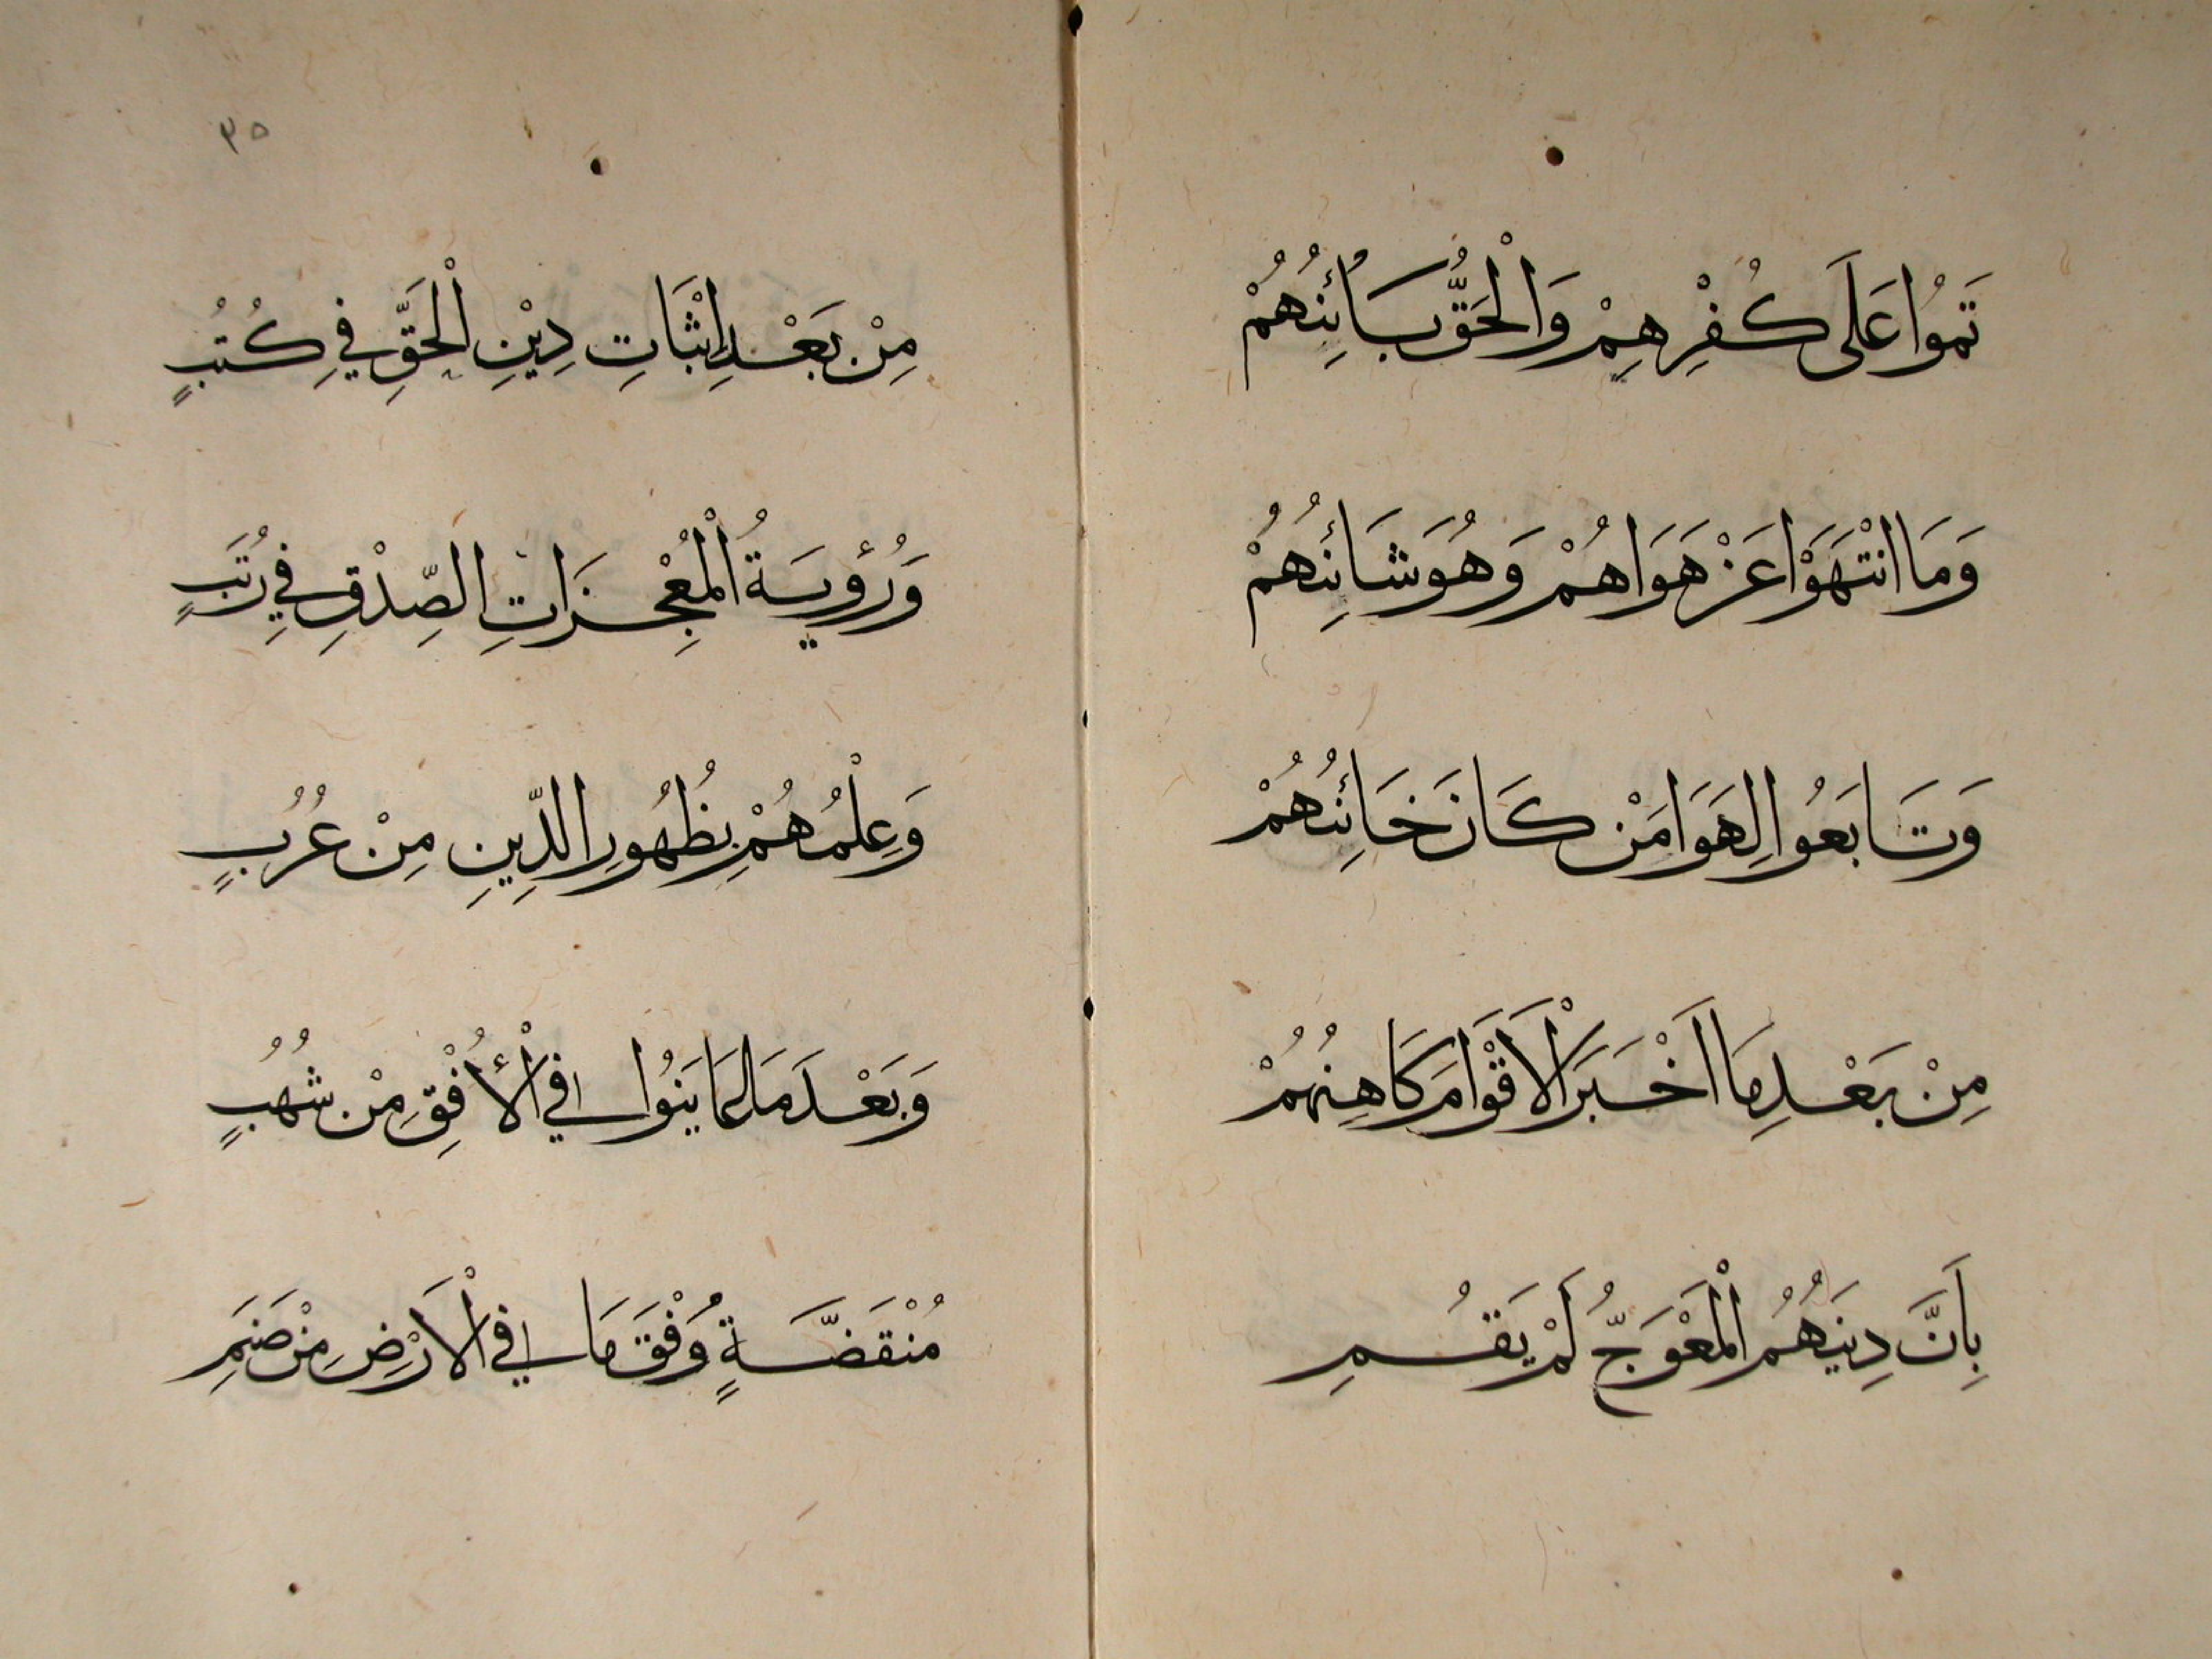 تَمُوُا عَلَى كُفْرِهِمْ وَالْحَقُّ بَائِنُهُمْ
وَمَا انْتَهَوْا عَنْ هَوَاهُمْ وَهُوَ شَائِنُهُمْ
وَتَابَعُوا لِهَوَا مَنْ كَانَ خَائِنُهُمْ
مِنْ بَعْدِ مَا اَخْبَرَ الْاَقْوَامَ كَاهِنُهُمْ
بِاَنَّ دِينَهُمُ الْمَعْوَجُّ لَمْ يَقُمِ
٣٥
مِنْ بَعْدِ اِثْبَاتِ دِيْنِ الْحَقِّ فِي كُتُبٍ
وَرُؤْيَةُ الْمُعْجِزَاتِ الصِّدْقِ فِي رُتَبٍ
وَعِلْمُهُمْ بِظُهُورِ الدِّينِ مِنْ عُرُبٍ
وَبَعْدَ مَا عَايَنُوا فِي الْأُفْقِ مِنْ شُهُبٍ
مُنْقَضَّةٍ وَفْقَ مَا فِي الْاَرْضِ مِنْ صَنَمِ